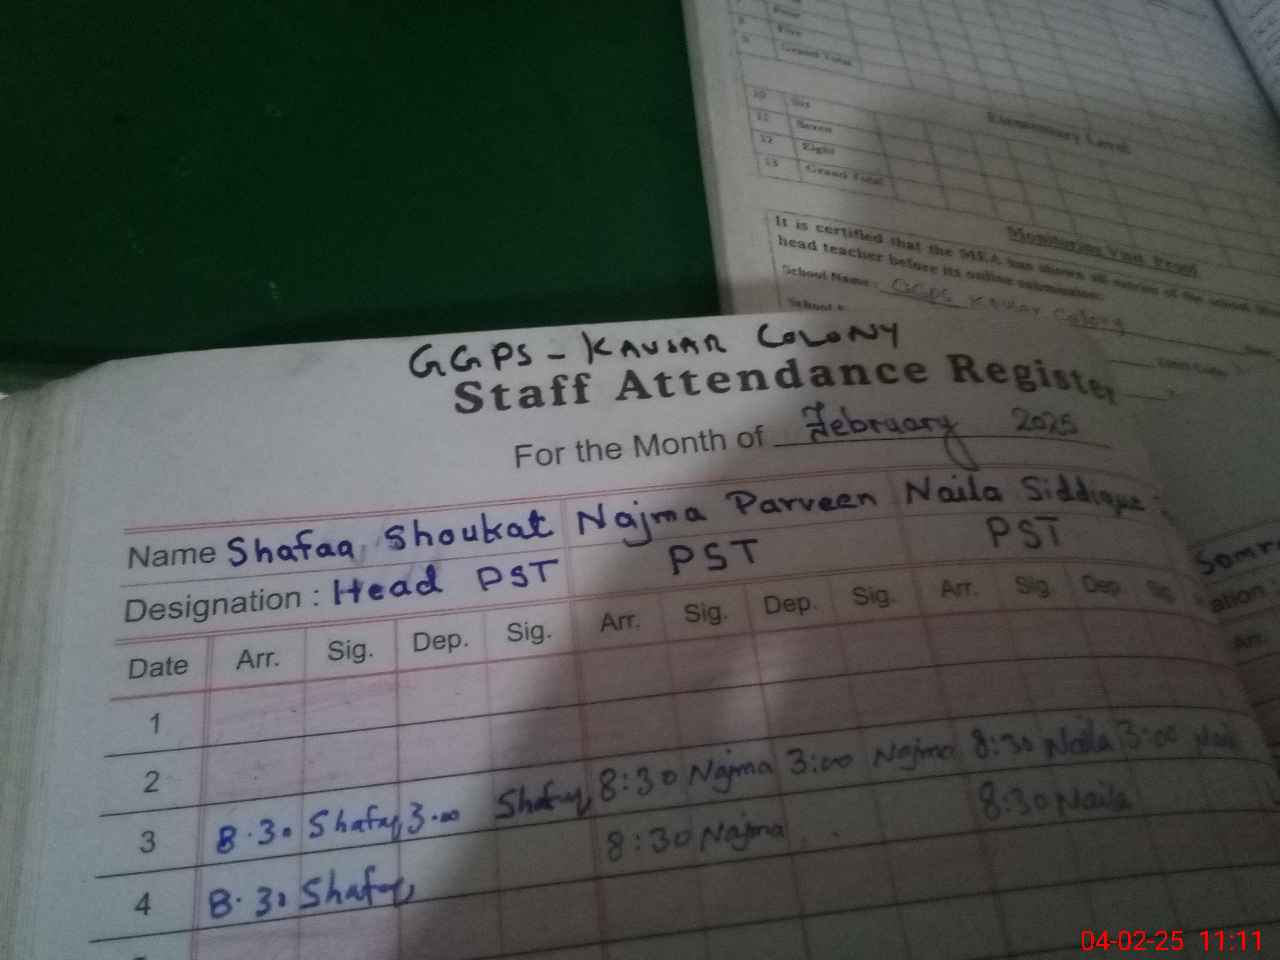 Four
Five
Grand Total
10 Six
11 Seven
12 Eight
13 Grand Total
Elementary Level
Monitoring Visit Proof
It is certified that the MEA has shown all entries of the school
head teacher before its online submission.
School Name: GGPS Kausar Colony
GGPS - KAUSAR COLONY
Staff Attendance Register
For the Month of February 2025
Name Shafaa Shoukat Najma Parveen Naila Siddique
Designation : Head PST PST PST
Date Arr. Sig. Dep. Sig. Arr. Sig. Dep. Sig. Arr. Sig. Dep. Sig.
1
2
3 8.30 Shafaq 3.00 Shafaq 8:30 Najma 3:00 Najma 8:30 Naila 3:00 Naila
4 8.30 Shafaq 8:30 Najma 8:30 Naila
04-02-25 11:11